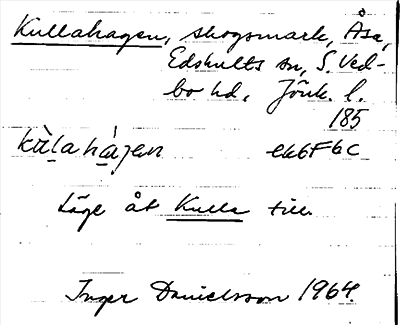 Kullahagen, skogsmark, Åsa,
Edshults sn, S. Ved-
bo hd, Jönk. l.
185
kùlahágen ek6F6c
Läge åt Kulla till.
Inger Danielsson 1964.